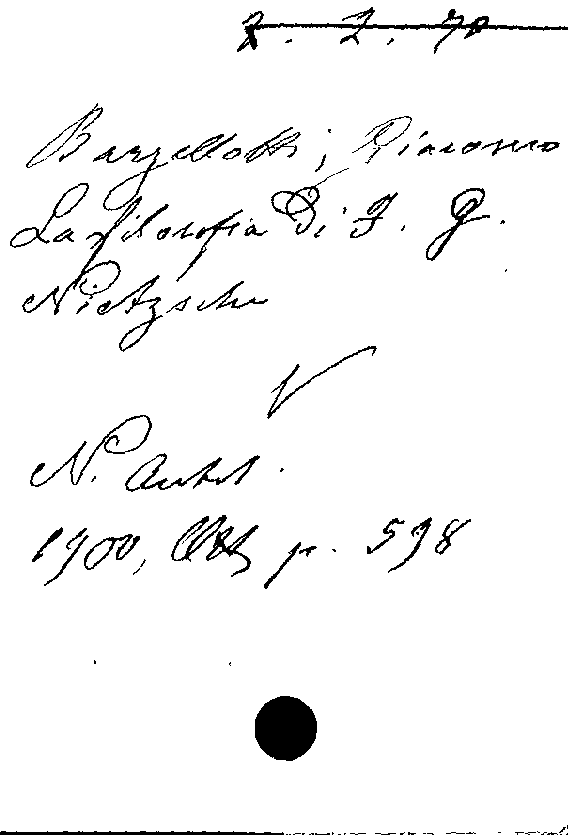 2. 2. 70
Barzellotti, Giacomo
La filosofia di F. G.
Nietzsche
N. Antol.
1900, Ott p. 598